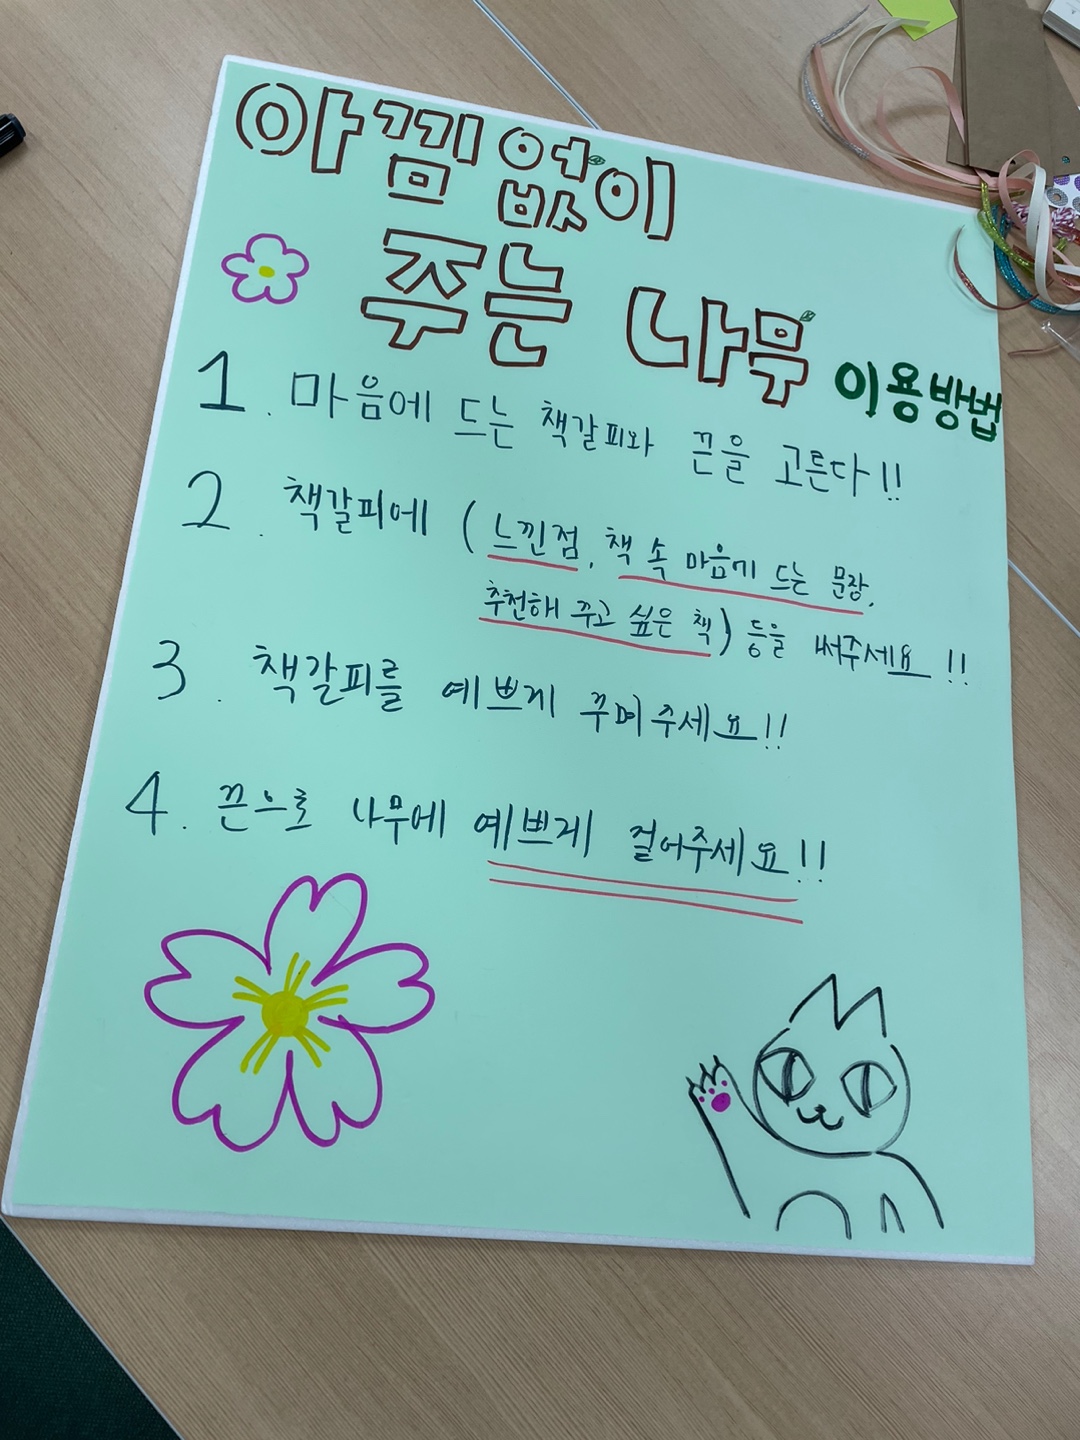 아낌없이
주는 나무 이용방법
1. 마음에 드는 책갈피와 끈을 고른다!!
2. 책갈피에 (느낀점, 책 속 마음에 드는 문장,
추천해 주고 싶은 책) 등을 써주세요!!
3. 책갈피를 예쁘게 꾸며주세요!!
4. 끈으로 나무에 예쁘게 걸어주세요!!